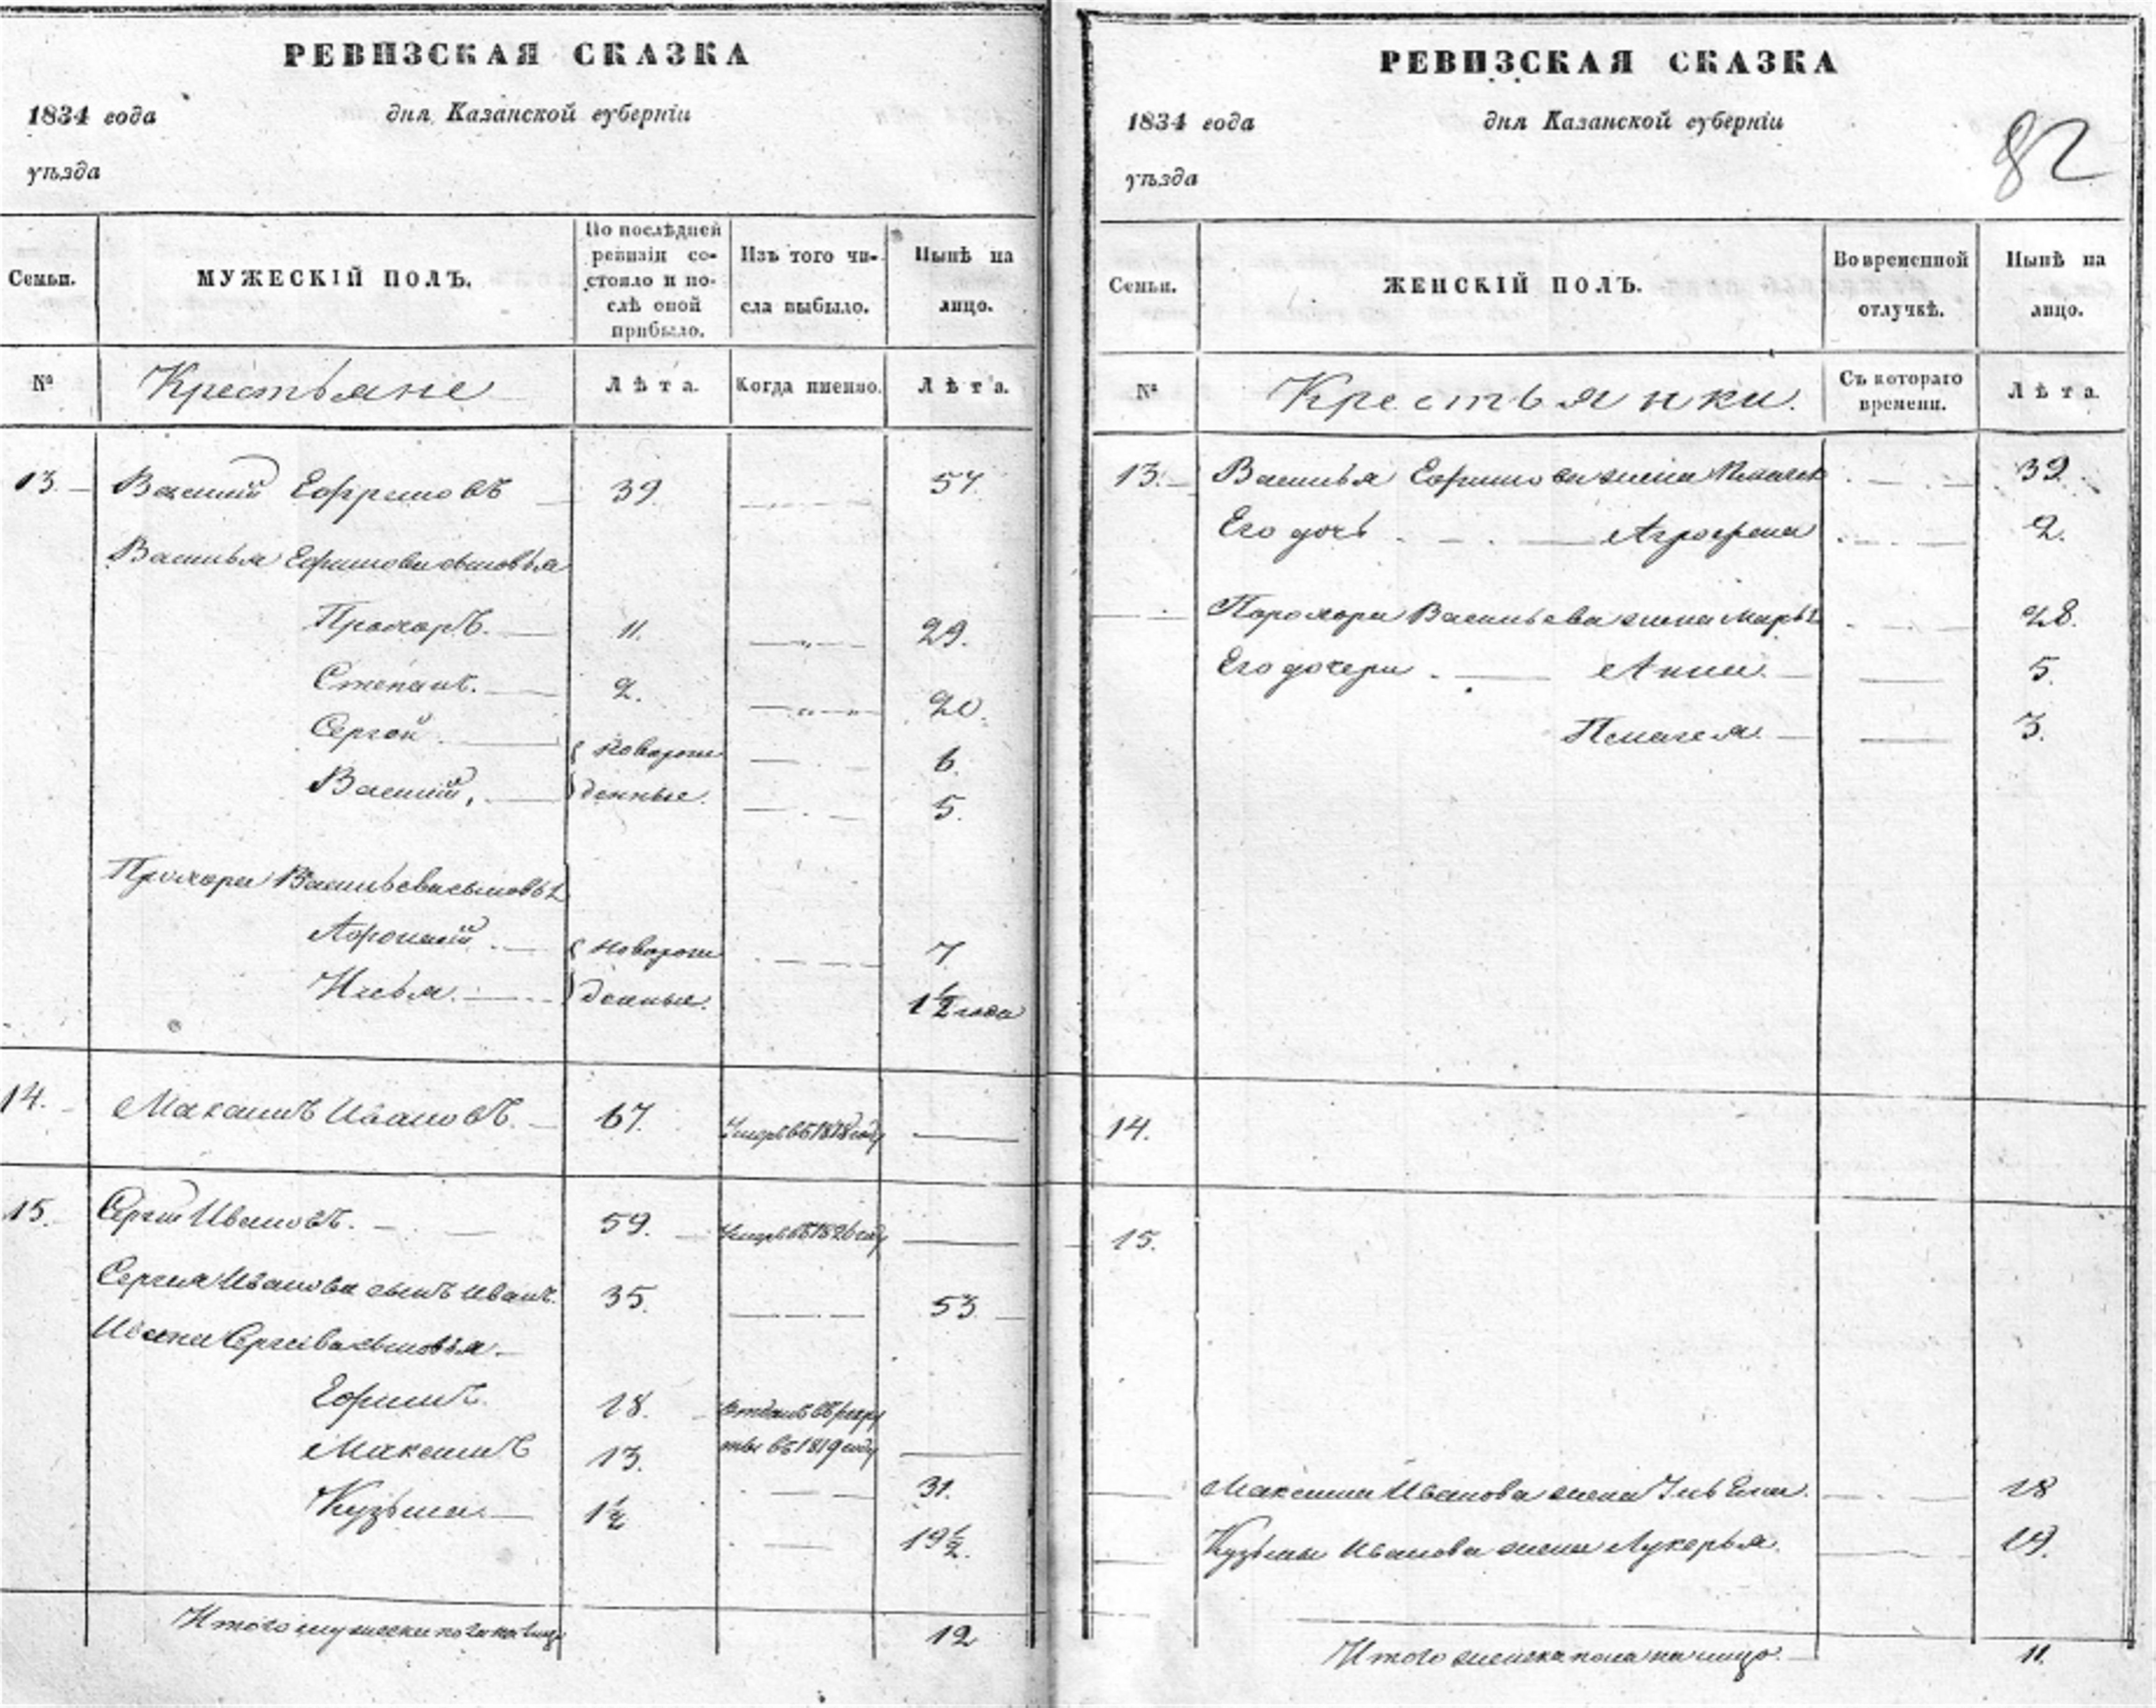 РЕВИЗСКАЯ СКАЗКА
1834 года дня Казанской губерніи
уѣзда
Семьи.
МУЖЕСКІЙ ПОЛЪ.
По послѣдней
ревизіи со-
стояло и по-
слѣ оной
прибыло.
Изъ того чи-
сла выбыло.
Нынѣ на
лицо.
№ Крестьяне Лѣта. Когда именно. Лѣта.
13. Василий Ефремовъ 39. 57.
Василья Ефимова сыновья
Прохоръ. 11. 29.
Степанъ. 2. 20.
Сергей новорож 6.
Василий, денные. 5.
Прохора Васильева сыновья
Афонасий новорож 7.
Илья. денные. 1½ года
14. Максимъ Ивановъ. 67. Умеръ въ 1818 году
15. Сергей Ивановъ. 59. Умеръ въ 1826 году
Сергея Иванова сынъ Иванъ. 35. 53.
Ивана Сергеева сыновья.
Ефимъ. 18. Отданъ въ рекру
Максимъ 13. ты въ 1819 году
31.
Кузьма. 1½
19½.
Итого мужеска пола на лицо 12
РЕВИЗСКАЯ СКАЗКА
1834 года дня Казанской губерніи
уѣзда
82
Семьи.
ЖЕНСКІЙ ПОЛЪ.
Во временной
отлучкѣ.
Нынѣ на
лицо.
№ Крестьянки. Съ котораго
времени. Лѣта.
13. Василья Ефимова жена 39.
Его дочь Агрофена 2.
Порохора Васильева жена Марья 28.
Его дочери Анна 5.
Пелагея 3.
14.
15.
Максима Иванова жена 28
Кузьмы Иванова жена Лукерья. 19.
Итого женска пола на лицо. 11.